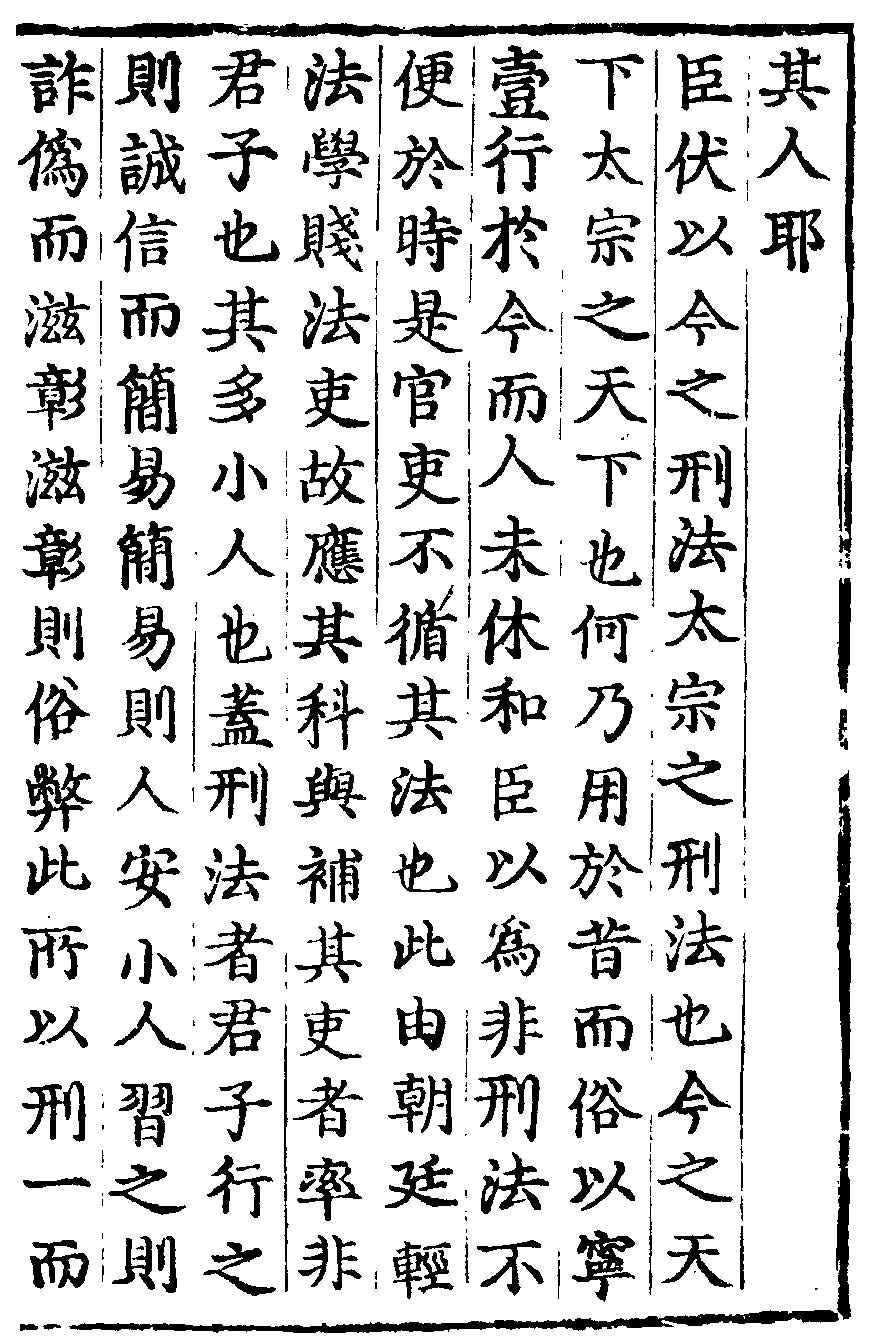 其人耶
臣伏以今之刑法太宗之刑法也今之天
下太宗之天下也何乃用於昔而俗以寧
壹行於今而人未休和臣以爲非刑法不
便於時是官吏不循其法也此由朝廷輕
法學賤法吏故應其科與補其吏者率非
君子也其多小人也蓋刑法者君子行之
則誠信而簡易簡易則人安小人習之則
詐僞而滋彰滋彰則俗弊此所以刑一而